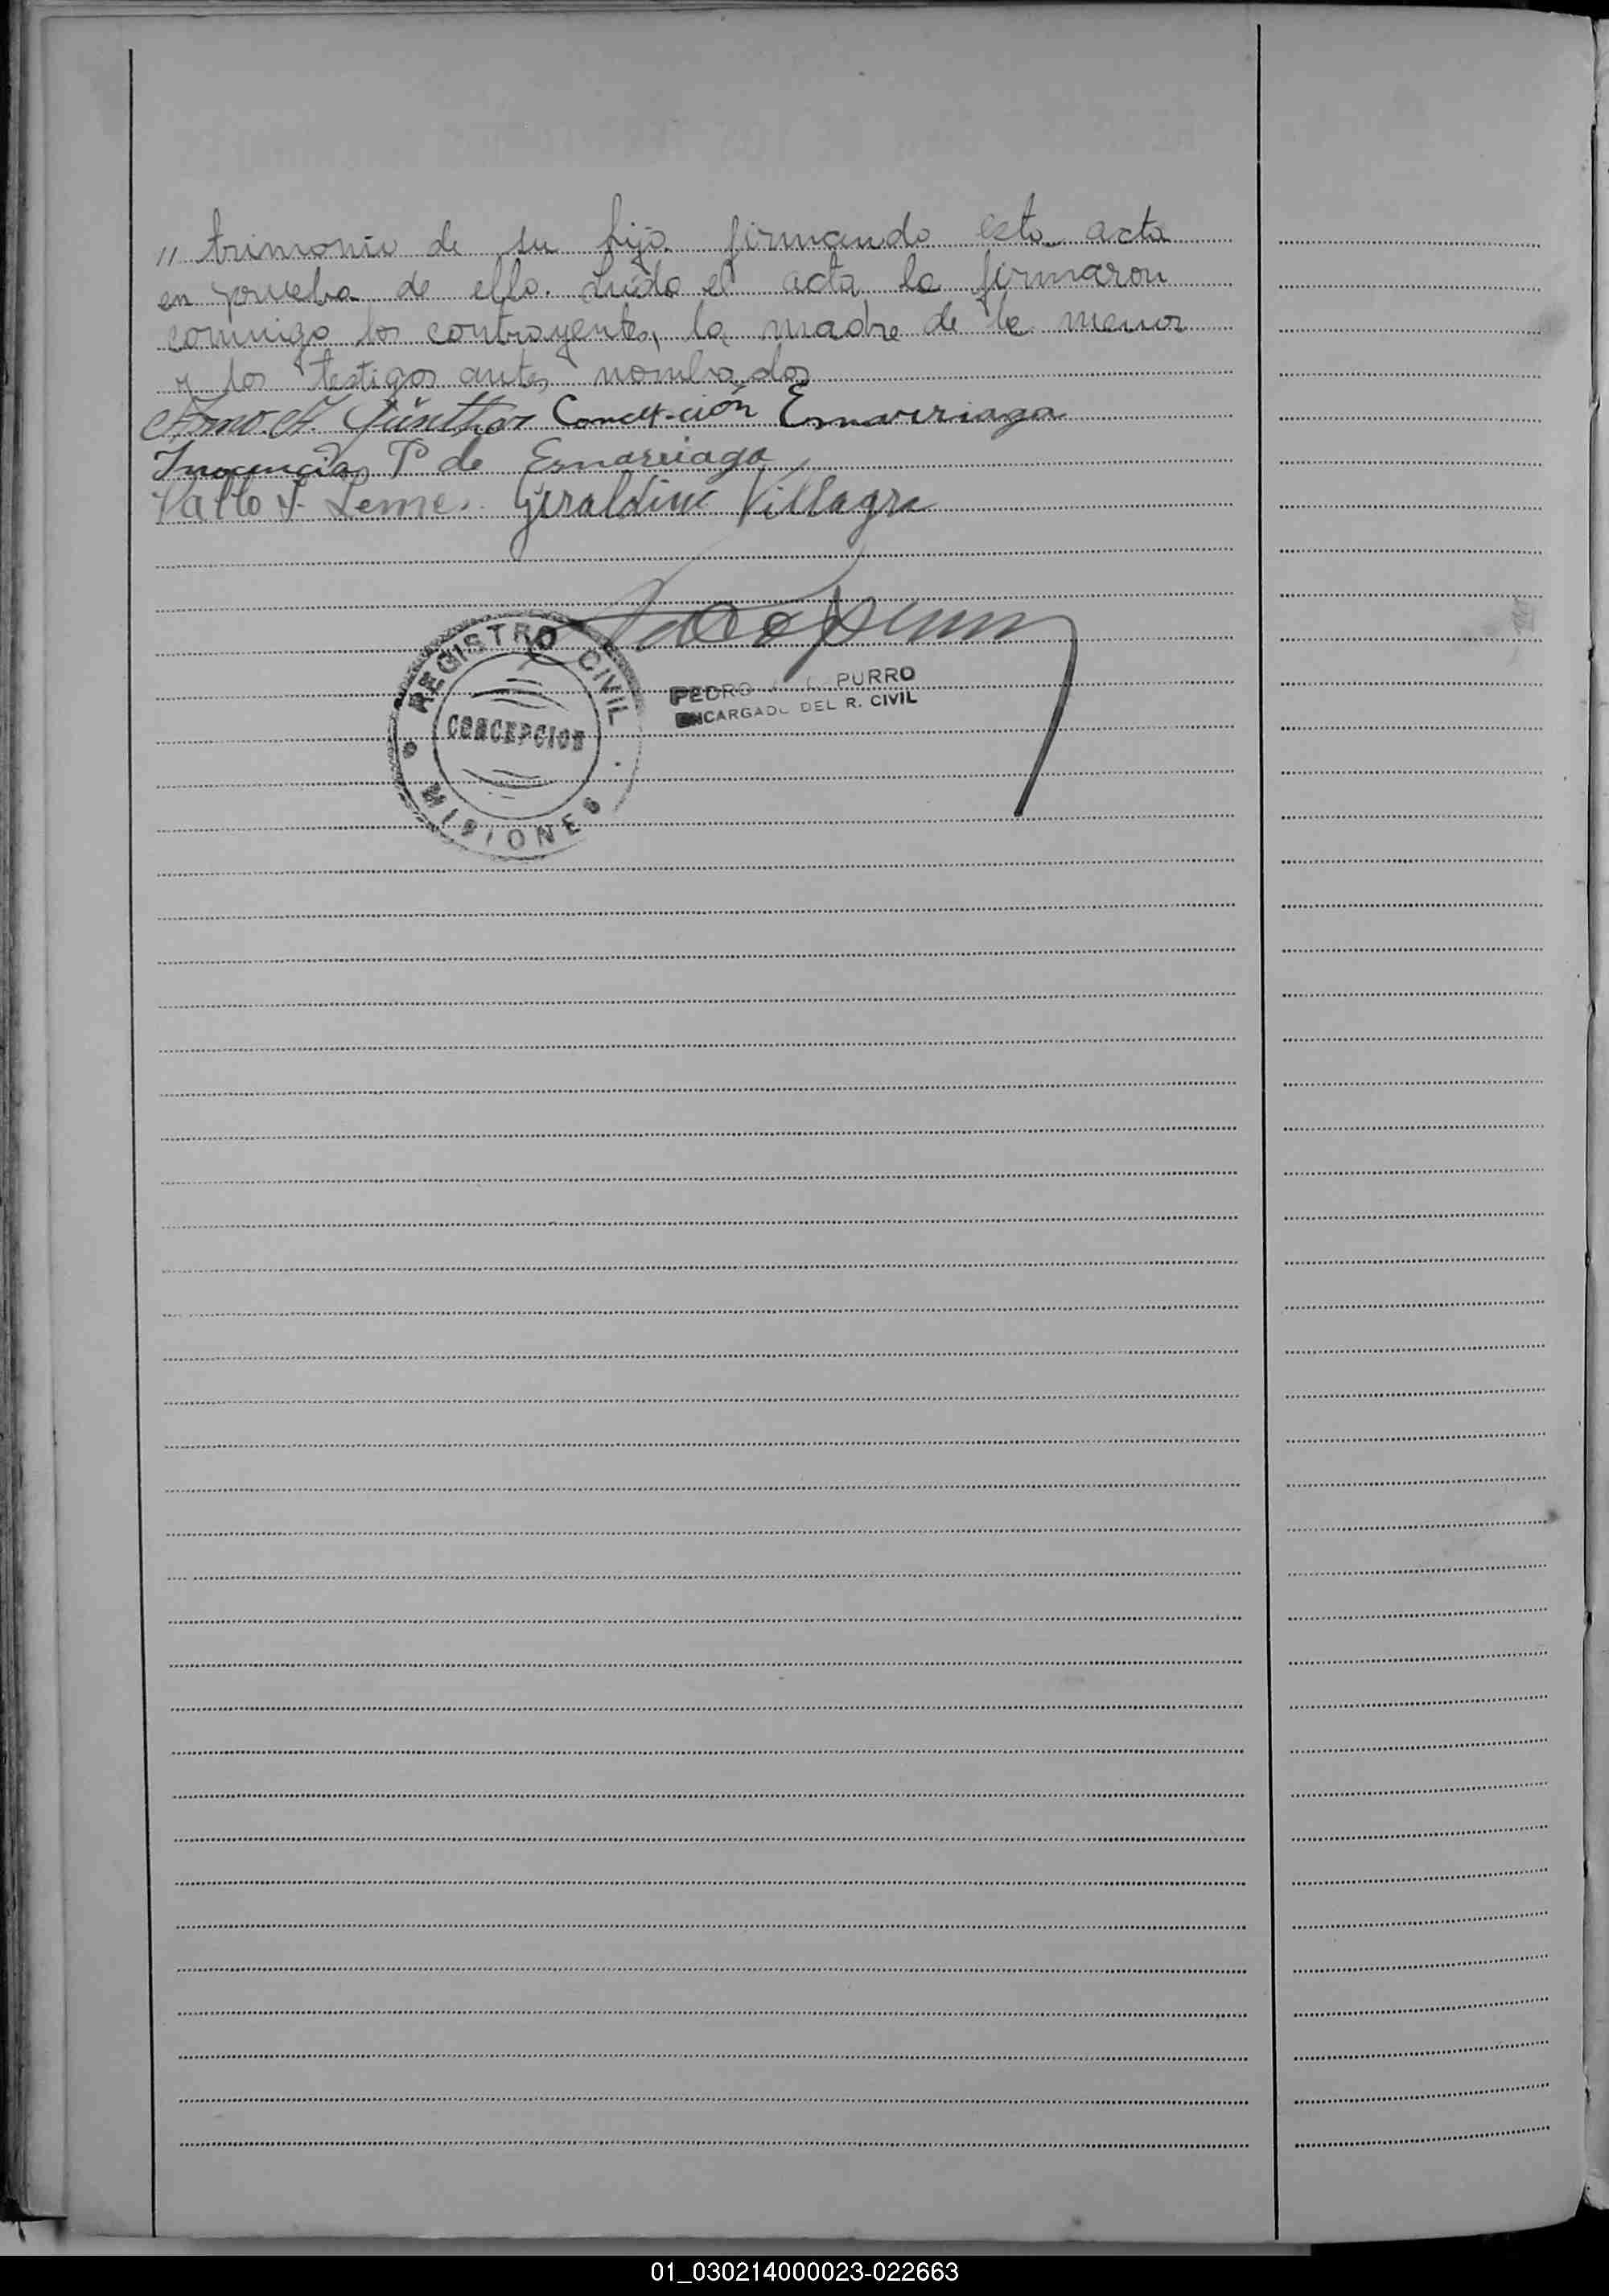 " trimonio de su hija firmando esta acta
en prueba de ello. Leída el acta la firmaron
conmigo los contrayentes, la madre de la menor
y los testigos antes nombrados
Arno A. Günther Concepción Esnarriaga
Inocencia P de Esnarriaga
Pablo F. Leme. Geraldino Villagra
REGISTRO CIVIL
CONCEPCION
MISIONES
PEDRO PURRO
ENCARGADO DEL R. CIVIL
01_030214000023-022663